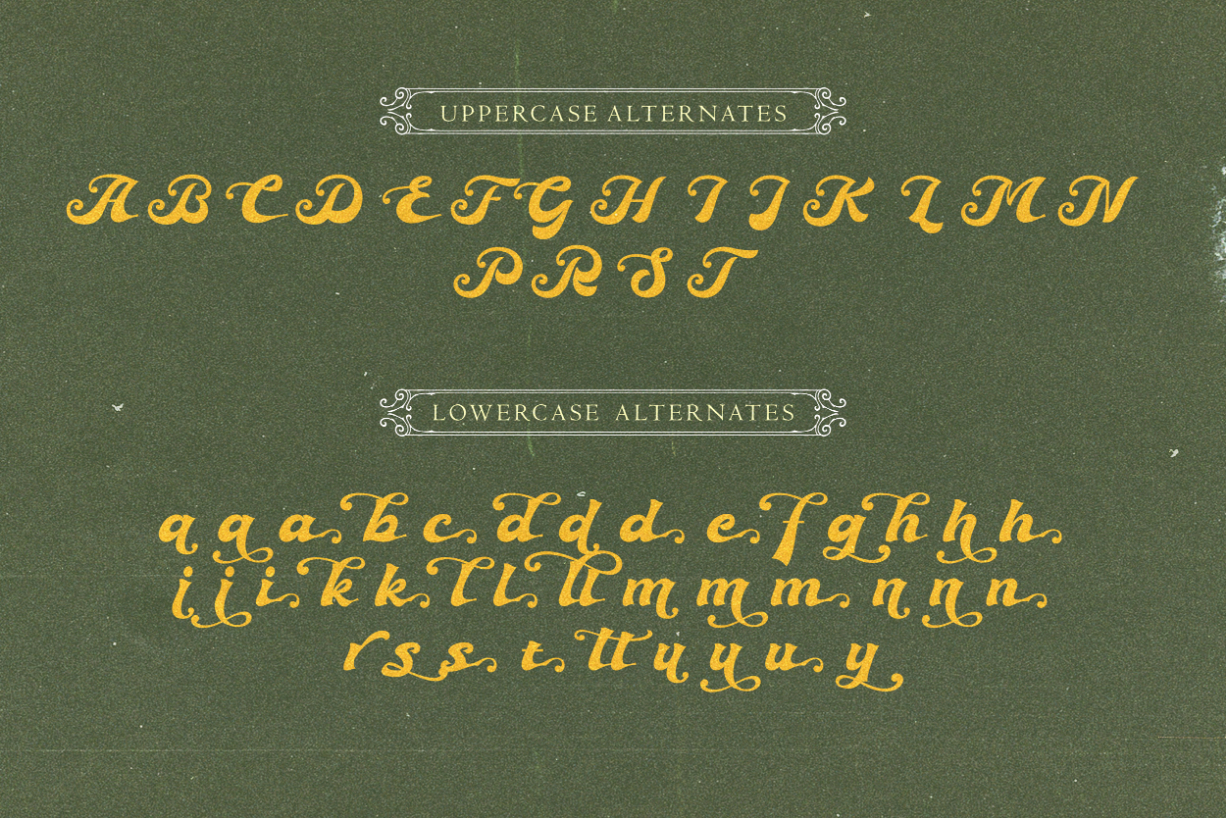 UPPERCASE ALTERNATES
A B C D E F G H I J K L M N
P R S T
LOWERCASE ALTERNATES
a a a b c d d d e f g h h h
i i i k k l l ll m m m n n n
r s s t tt u u u y